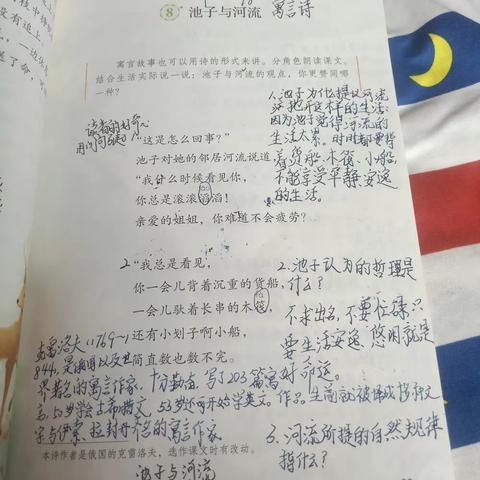 8 池子与河流 寓言诗
寓言故事也可以用诗的形式来讲。分角色朗读课文。
结合生活实际说一说：池子与河流的观点，你更赞同哪
一种？
“这是怎么回事？”
池子对她的邻居河流说道，
“我什么时候看见你，
你总是滚滚滔滔！
亲爱的姐姐，你难道不会疲劳？
2 “我总是看见，
你一会儿背着沉重的货船，
一会儿驮着长串的木筏，
还有小划子啊小船，
简直数也数不完。
1.池子为什么提议河流
抛开这样的生活：
因为池子觉得河流的
生活太累，时时都要背
着货船、木筏、小船，
不能享受平静、安逸
的生活。
2.池子认为的哲理是
什么？
不求出名，不要忙碌，只
要生活安逸、悠闲就是
好命运。
3.河流所提的自然规律
指什么？
克雷洛夫（1769～
844）是俄国以及世
界著名的寓言作家，十分勤奋，写了203篇寓
言，50岁学会古希腊文，53岁还开始学英文。作品生前就被译成
本诗作者是俄国的克雷洛夫，选作课文时有改动。
池子与河流